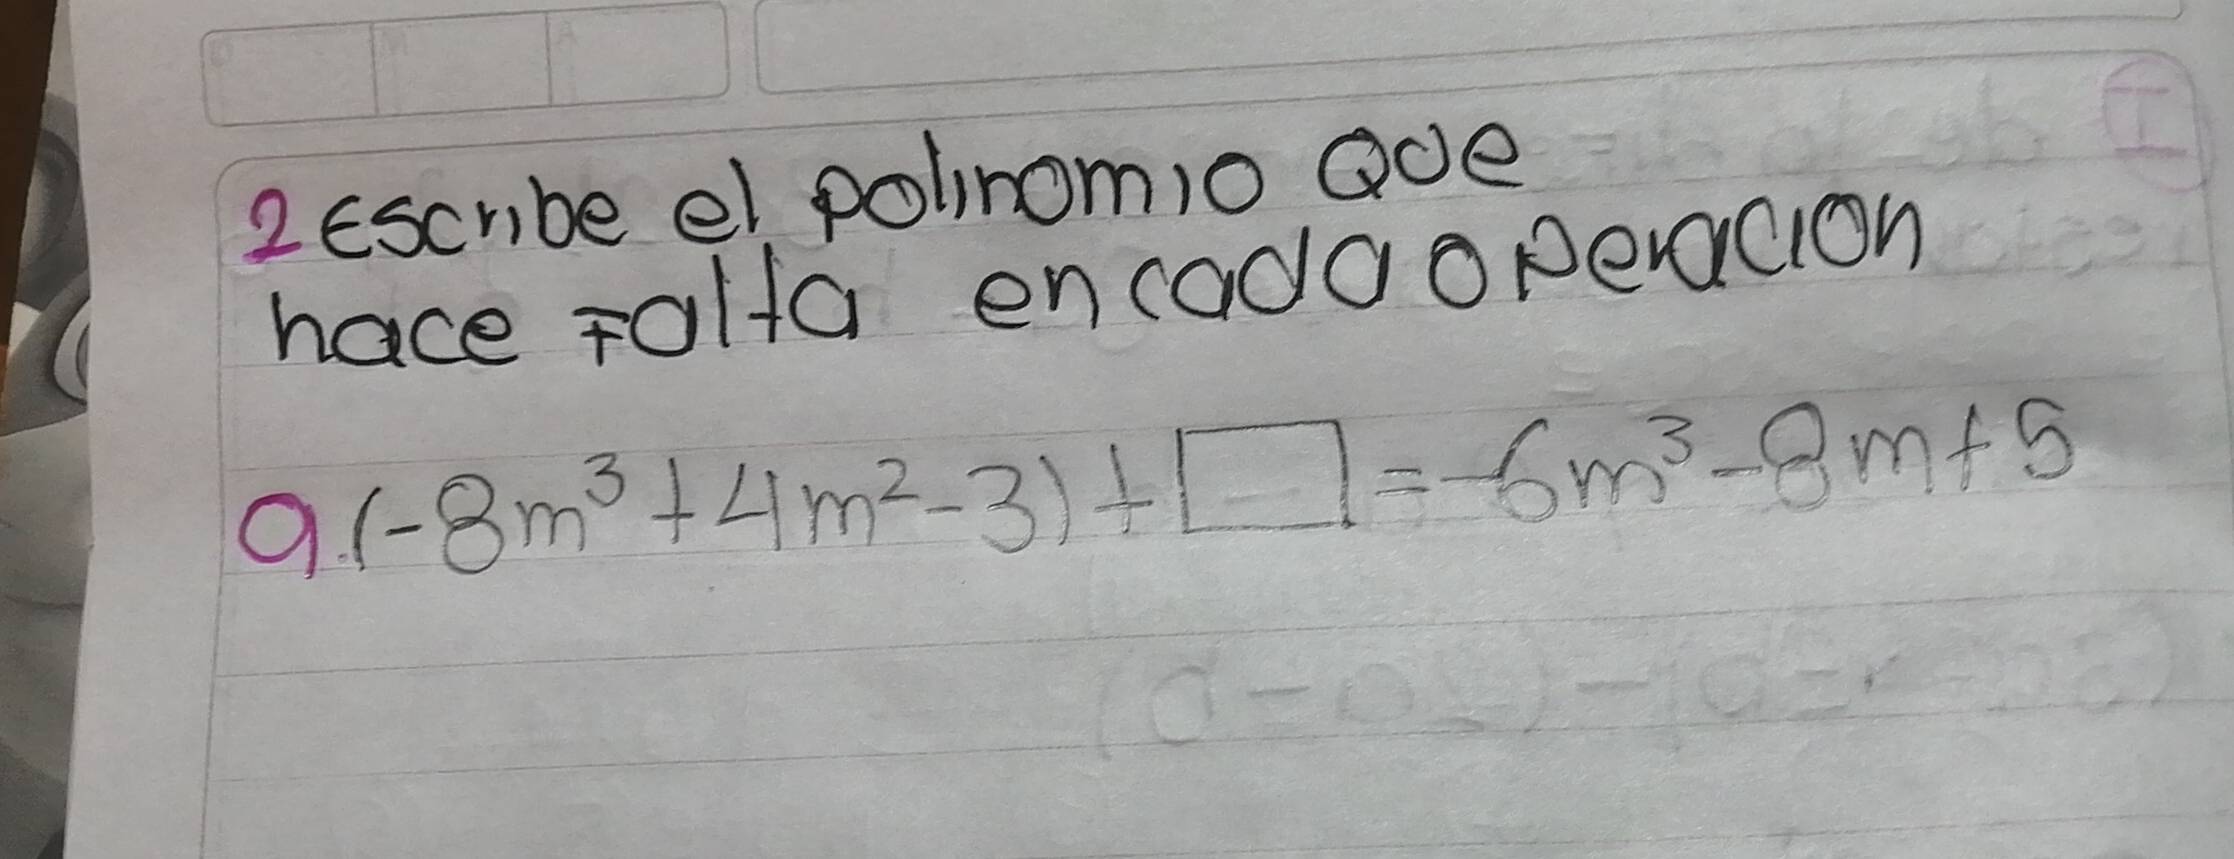 2 Escribe el polinomio Que
hace Falta en cada operacion
a. (-8m³+4m²-3)+□=-6m³-8m+5